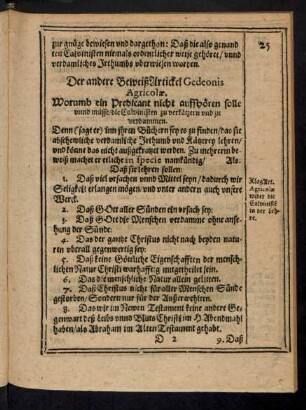 25
zur gnüge bewiesen und dargethon: Daß die also genand
ten Calvinisten niemals ordentlicher weise gehöret/ unnd
verdamliches Jrthumbs uberwiesen worten.
Der andere Beweiß Artickel Gedeonis
Agricolæ.
Worumb ein Predicant nicht auffhören solle
unnd müsse/ die Calvinisten zu verketzern und zu
verdammen.
Denn (sagt er) inn ihren Büchern sey es zu finden/ das sie
abscheuliche verdamliche Jrthumb und Kätzerey lehren/
und könne das nicht außgekratzet werden. Zu mehrerem
beweiß machet er etliche in specie namkündig/ Als.
Daß sie lehren sollen:
1. Daß viel ursachen unnd Mittel seyn/ dadurch wir
Seligkeit erlangen mögen/ und unter andern auch unsere
Werck.
2. Daß GOtt aller Sünden ein ursach sey.
3. Daß GOtt die Menschen verdamme ohne anse-
hung der Sünde.
4. Das der gantze Christus nicht nach beyden natu-
ren uberall gegenwertig sey.
5. Daß keine Göttliche Eigenschafften der mensch-
lichen Natur Christi warhafftig mitgetheilet sein.
6. Das die menschliche Natur allein gelitten.
7. Daß Christus nicht für aller Menschen Sünde
gestorben/ Sondern nur für der Außerwehlten.
8. Das wir im Newen Testament keine andere Ge-
genwart deß Leibs unnd Bluts Christi im H. Abendmahl
haben/ als Abraham im Alten Testament gehabt.
D 2 9. Daß
KlagArt.
Agricolæ
wider die
Calvinistē
in der Leh-
re.